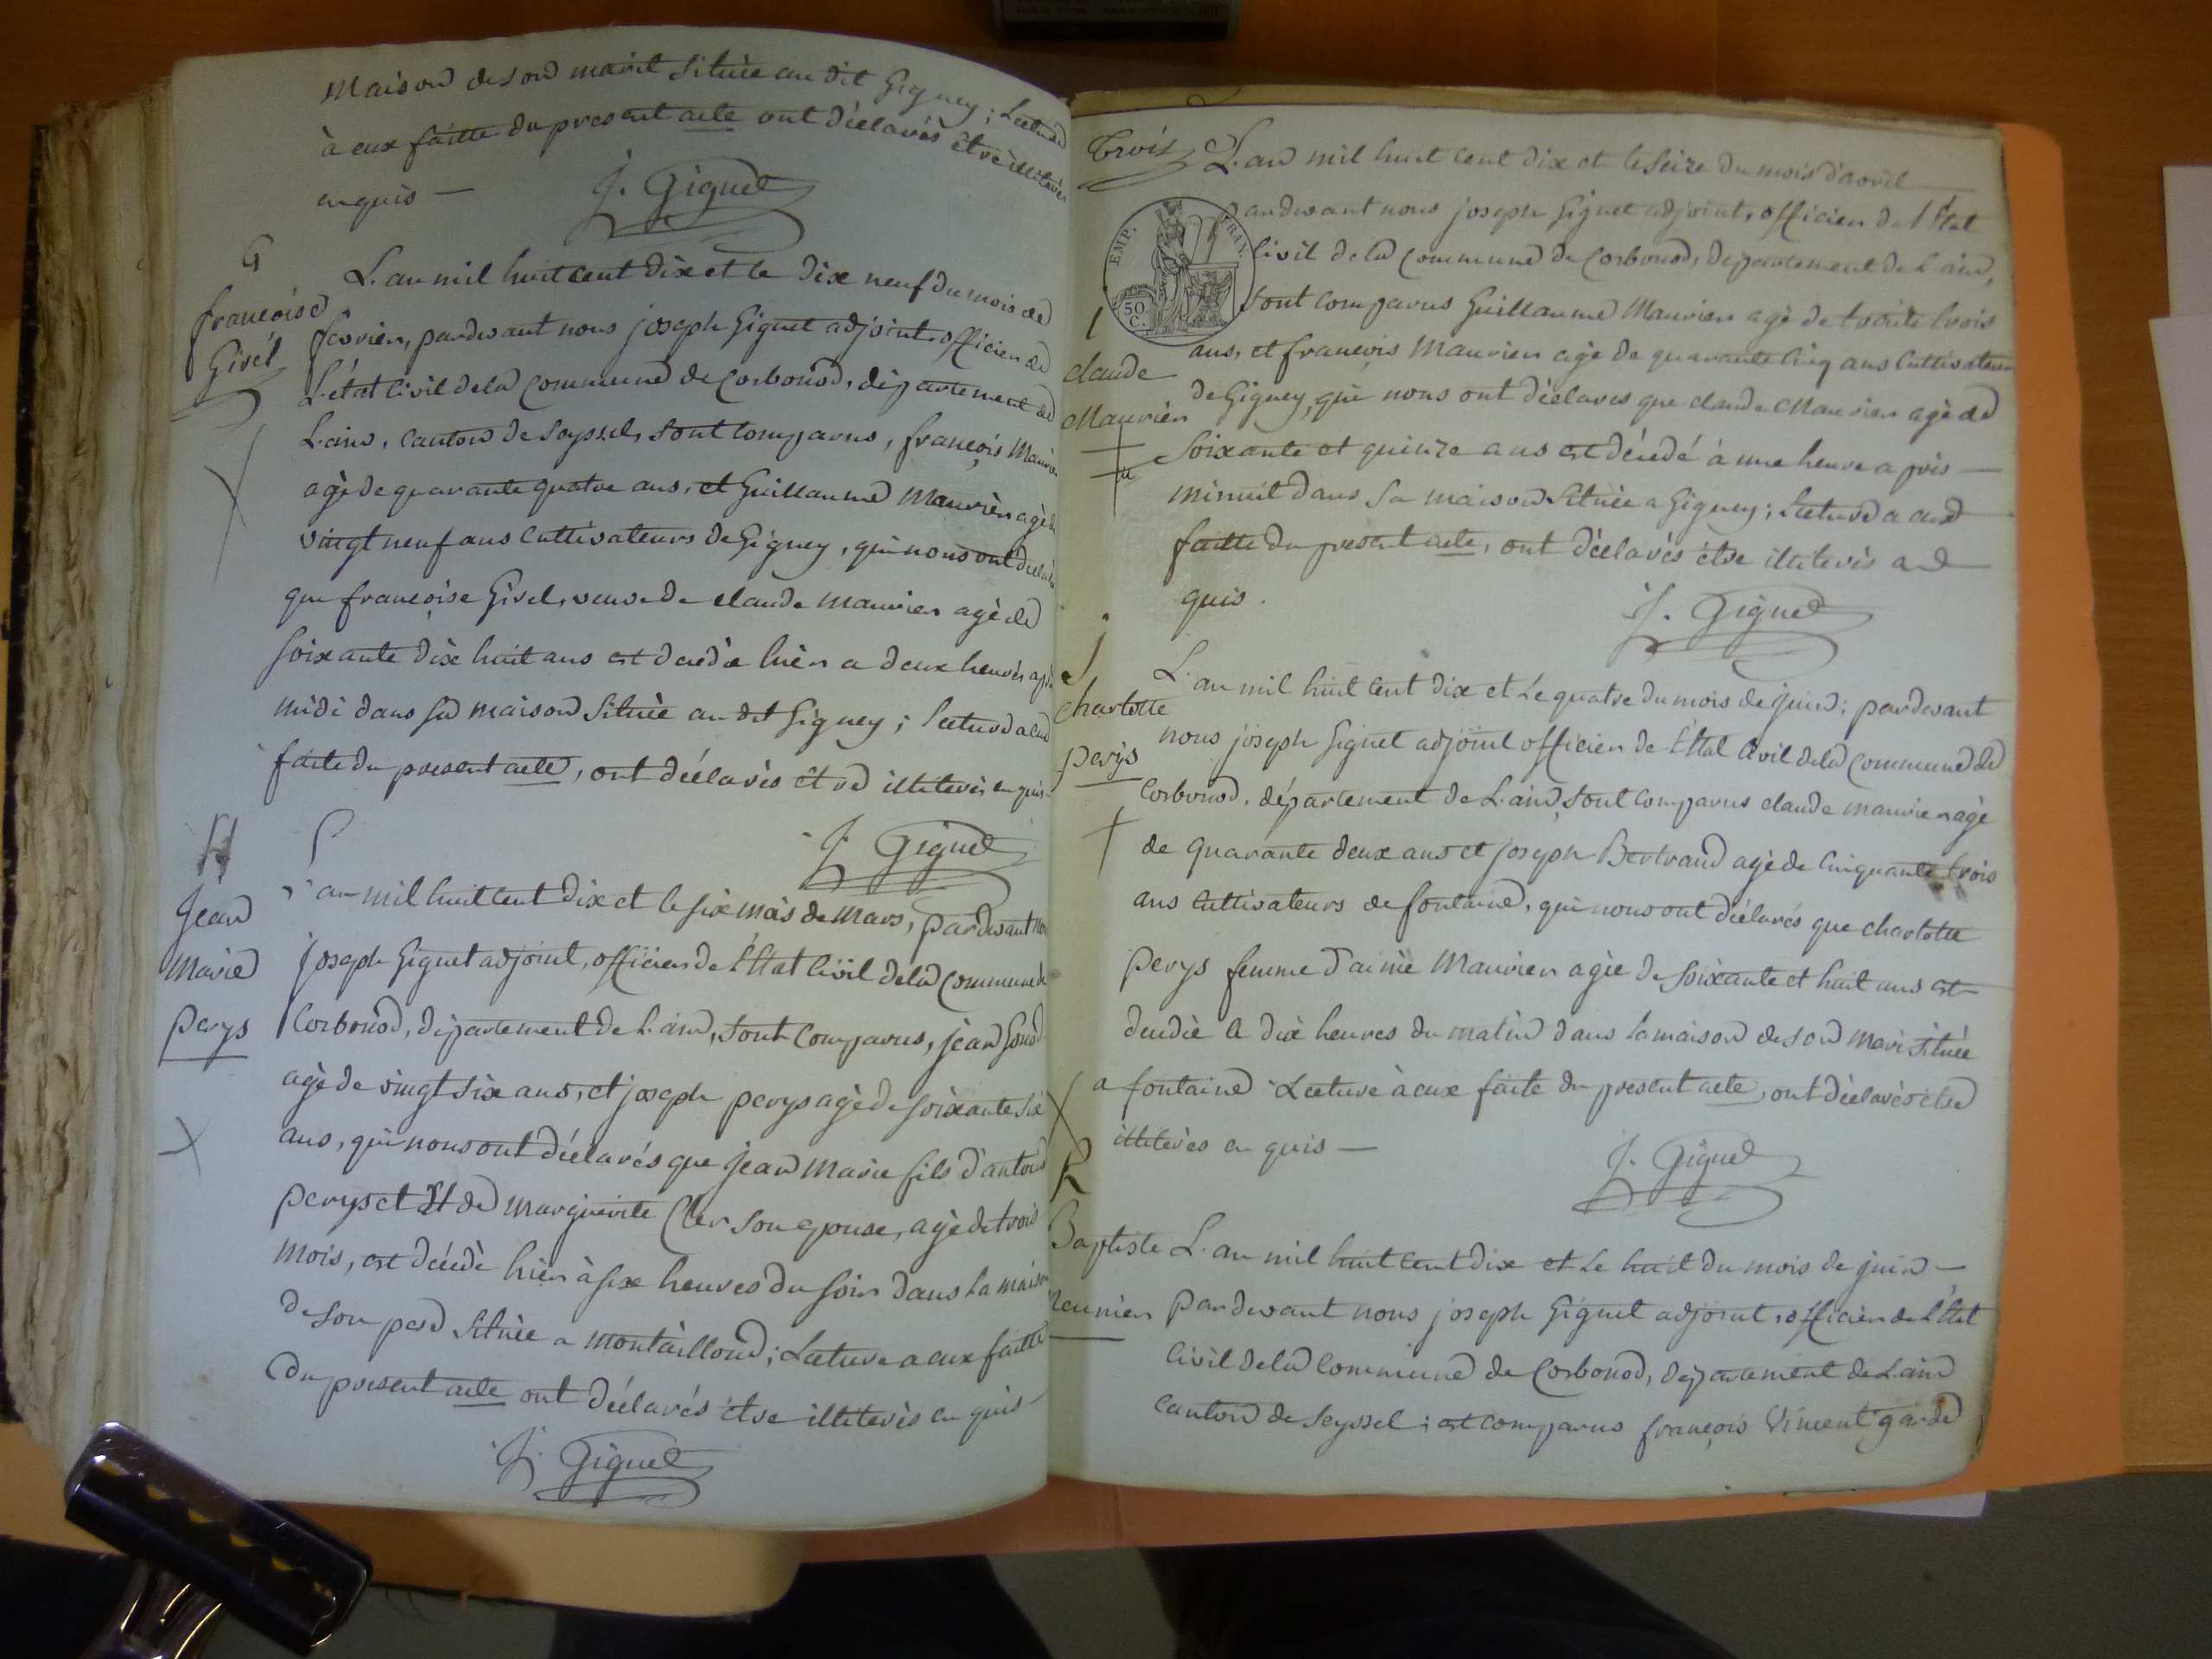 Maison de son marit située au dit Gigney ; Lecture
à eux faitte du present acte ont déclarés être illiterés
enquis —
J. Giguet
G
françoise
Givel
L'an mil huit cent dix et le dix neuf du mois de
fevrier, pardevant nous joseph Giguet adjoint officier de
L'état Civil de la Commune de Corbonod, département de
L'ain, canton de Seyssel, sont comparus, françois Maurier
agé de quarante quatre ans, et Guillaume Maurier agé de
vingt neuf ans cultivateurs de Gigney, qui nous ont déclarés
que françoise Givel, veuve de claude maurier agée de
soixante dix huit ans est decedée hier a deux heures après
midi dans sa maison située au dit Gigney ; lecture a eux
faite du present acte, ont déclarés etre illiterés enquis
J. Giguet
H
Jean
Marie
perys
L'an mil huit cent dix et le six mois de Mars, pardevant nous
joseph Giguet adjoint, officier de l'état Civil de la Commune de
Corbonod, département de L'ain, sont comparus, jean
agé de vingt six ans, et joseph perys agé de soixante six
ans, qui nous ont déclarés que jean Marie fils d'antoine
perys et de marguerite Cler son epouse, agé de trois
mois, est décédé hier à six heures du soir dans la maison
de son pere située a montailloud ; Lecture a eux faitte
du present acte ont déclarés etre illiterés enquis
J. Giguet
Trois
L'an mil huit cent dix et le seize du mois d'avril
EMP. FRAN.
50 C.
pardevant nous joseph Giguet adjoint, officier de l'État
Civil de la Commune de Corbonod, département de L'ain,
sont comparus Guillaume Maurier agé de trente trois
ans, et françois Maurier agé de quarante cinq ans Cultivateurs
I
claude
Maurier
de Gigney, qui nous ont déclarés que claude Maurier agé de
soixante et quinze ans est décédé à une heure après
minuit dans sa maison située a Gigney ; Lecture a eux
faitte du present acte, ont déclarés être illiterés en
quis.
J. Giguet
j
charlotte
perys
L'an mil huit cent dix et Le quatre du mois de juin ; pardevant
nous joseph Giguet adjoint officier de l'État Civil de la Commune de
Corbonod, département de L'ain, sont comparus claude maurier agé
de quarante deux ans et joseph Bertrand agé de cinquante trois
ans Cultivateurs de fontaine, qui nous ont déclarés que charlotte
perys femme d'aimé Maurier agée de soixante et huit ans est
decedée a dix heures du matin dans la maison de son mari située
a fontaine Lecture à eux faite du present acte, ont déclarés etre
illiterés en quis —
J. Giguet
K
Baptiste
reunier
L'an mil huit cent dix et Le huit du mois de juin —
Pardevant nous joseph Giguet adjoint, officier de l'État
Civil de la Commune de Corbonod, département de L'ain
Canton de Seyssel ; est comparus françois Vincent garde